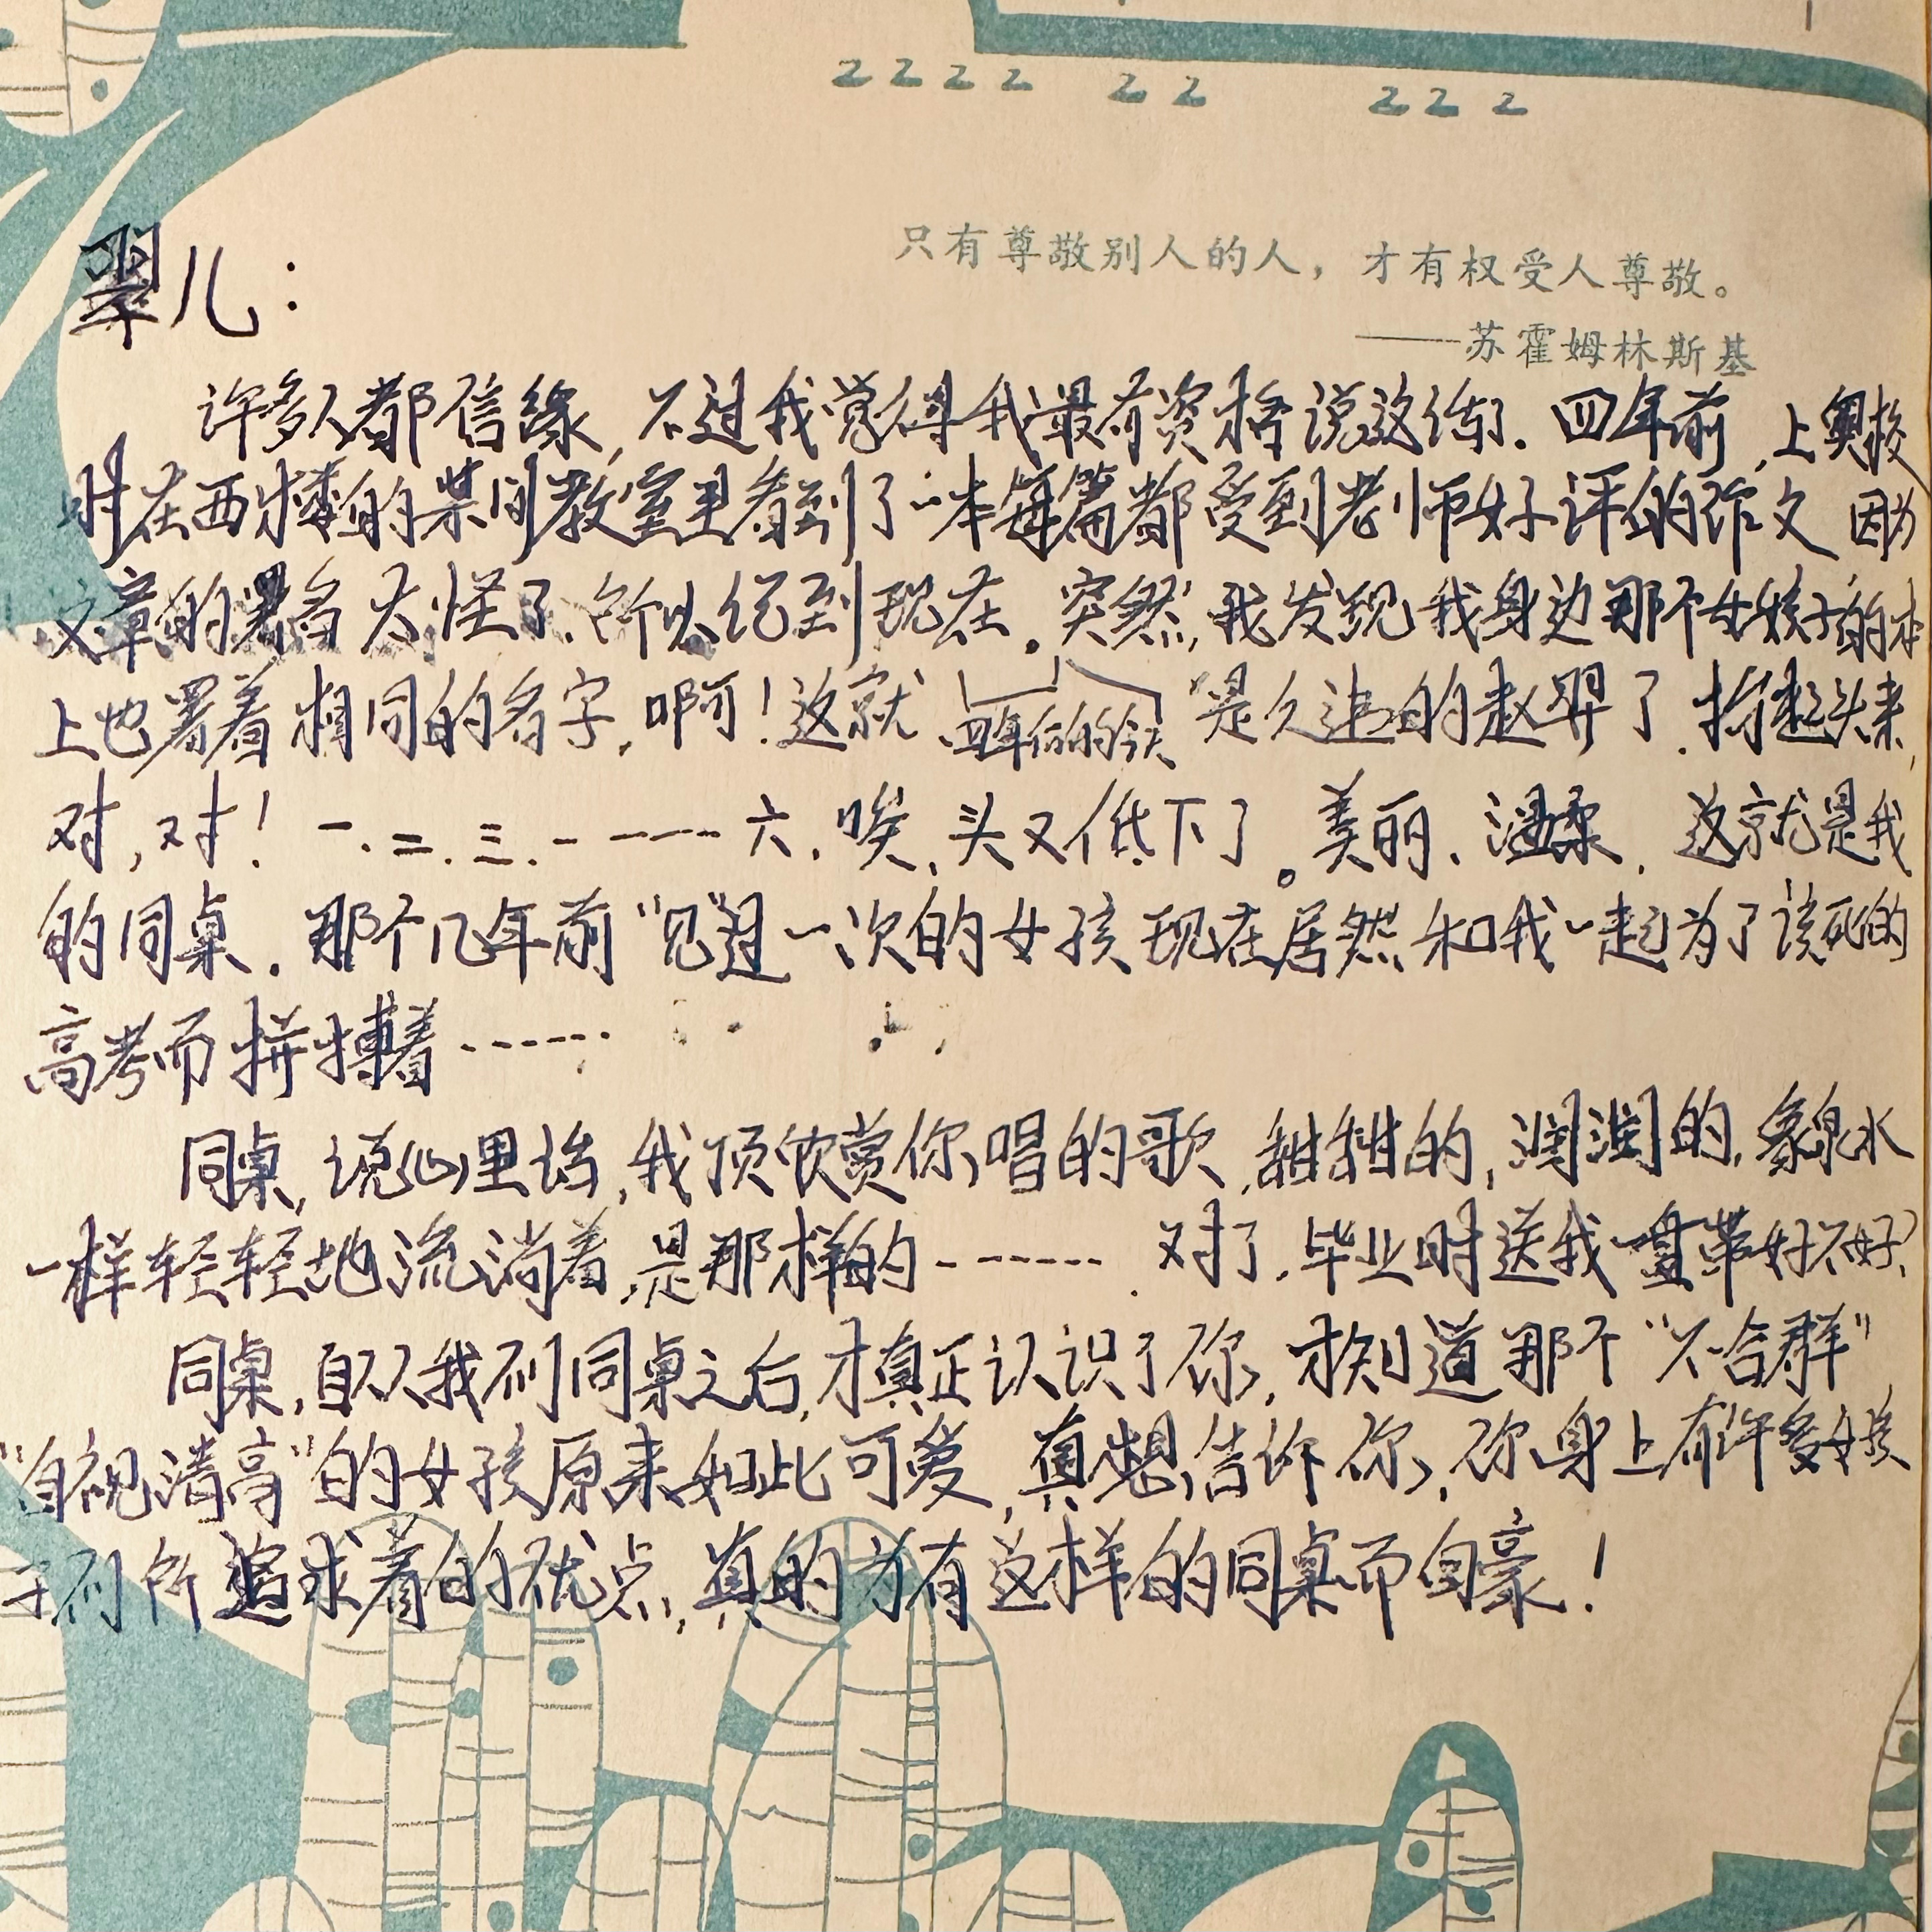 只有尊敬别人的人，才有权受人尊敬。
——苏霍姆林斯基
翠儿：
许多人都信缘，不过我觉得我最有资格说这话了.四年前,上奥校
时在西楼的某间教室里看到了一本每篇都受到老师好评的作文 因为
文章的署名太怪了.所以记到现在。突然,我发现我身边那个女孩子的本
上也署着相同的名字.啊!这就 四年后的今天 是久违的赵翠了.抬起头来,
对,对!一.二.三.------六.唉、头又低下了。美丽、温柔.这就是我
的同桌.那个几年前“见”过一次的女孩现在居然和我一起为了该死的
高考而拼搏着------
同桌,说心里话,我顶欣赏你唱的歌,甜甜的,润润的,象泉水
一样轻轻地流淌着,是那样的------- 对了.毕业时送我一盘带好不好?
同桌,自从我们同桌之后,才真正认识了你,才知道那个“不合群”
“自视清高”的女孩原来如此可爱,真想告诉你,你身上有许多女孩
子们所追求着的优点,真的为有这样的同桌而自豪!